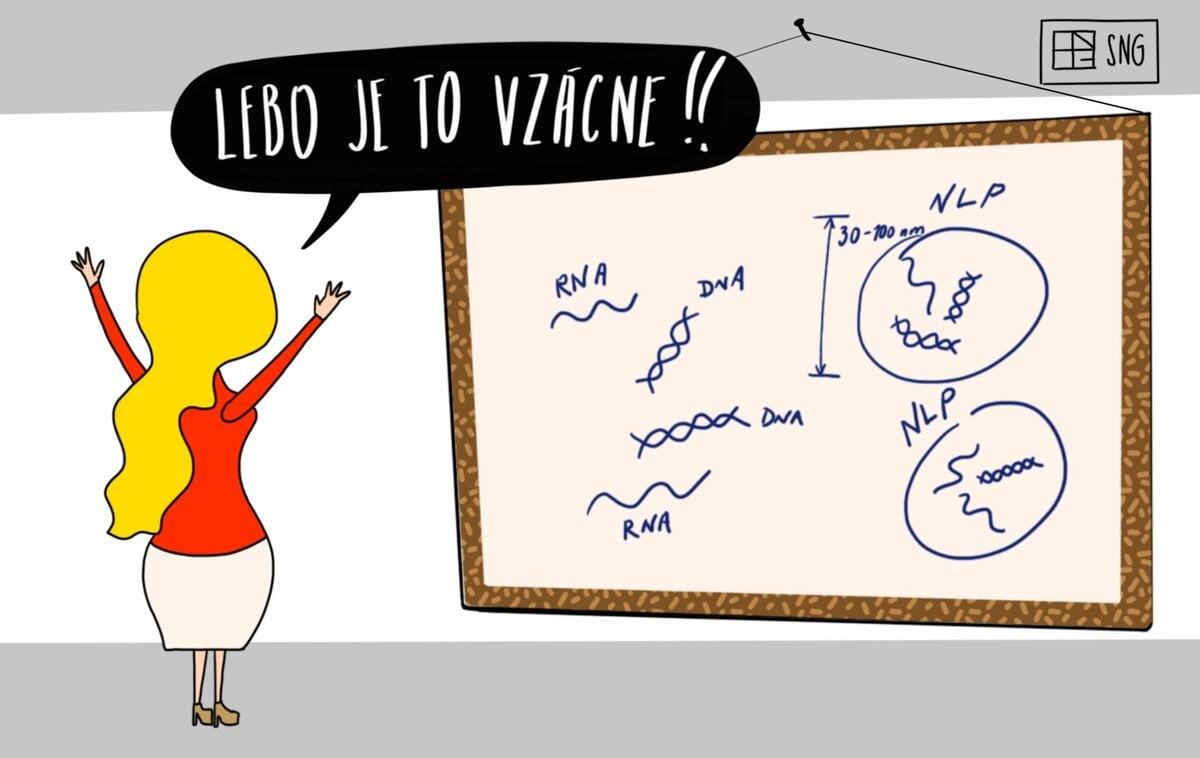 LEBO JE TO VZÁCNE!!
SNG
NLP
30-100 nm
RNA
DNA
DNA
NLP
RNA